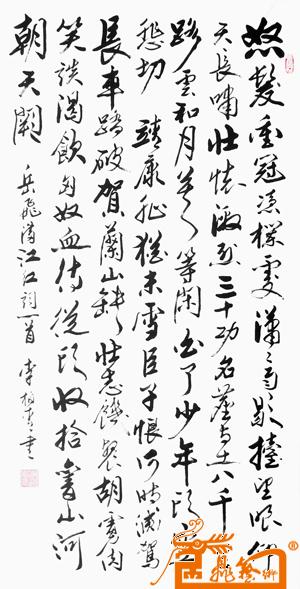 怒髮衝冠憑欄處瀟瀟雨歇擡望眼仰
天長嘯壯懷激烈三十功名塵與土八千
路雲和月莫等閑白了少年頭空
悲切 靖康恥猶未雪臣子恨何時滅駕
長車踏破賀蘭山缺壯志饑餐胡虜肉
笑談渴飲匈奴血待從頭收拾舊山河
朝天闕 岳飛滿江紅詞一首 李